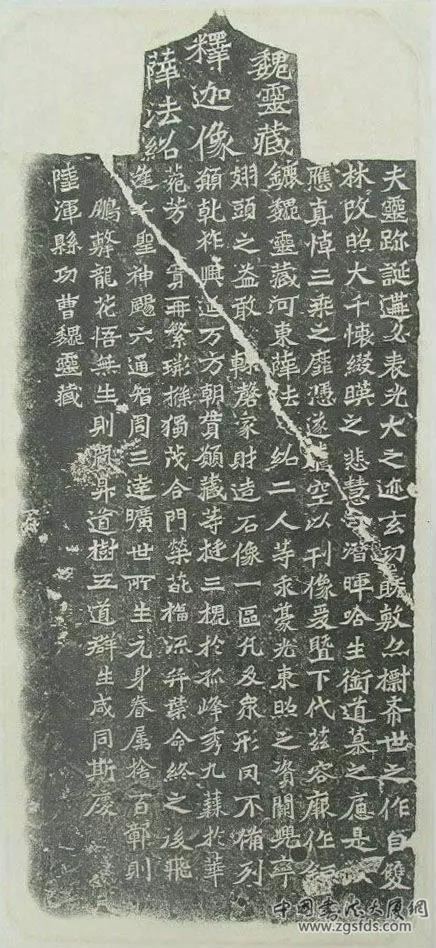 魏靈藏
釋迦像
薛法紹
夫靈跡誕遘必表光大之迹玄功既敷亦標希世之作自雙
林改照大千懷綴暎之悲慧潛暉唅生銜道慕之是
應真悼三乘之靡憑遂空以刊像爰暨下代茲容廓作鉅
鑣魏靈藏河東薛法紹二人等求豪光東照之資闕兜率
翅頭之益敢輒罄家財造石像一區凡及眾形罔不備列
願乹祚興延万方朝貫願藏等挺三槐於孤峰秀九蕀於華
苑芳實再繁荊條獨茂合門榮葩福流弈葉命終之後飛
逢千聖神颺六通智周三達曠世所生元身眷屬捨百鄣則
鵬擊龍花悟無生則鳳昇道樹五道群生咸同斯慶
陸渾縣功曹魏靈藏
中国书法大厦网
www.zgsfds.com